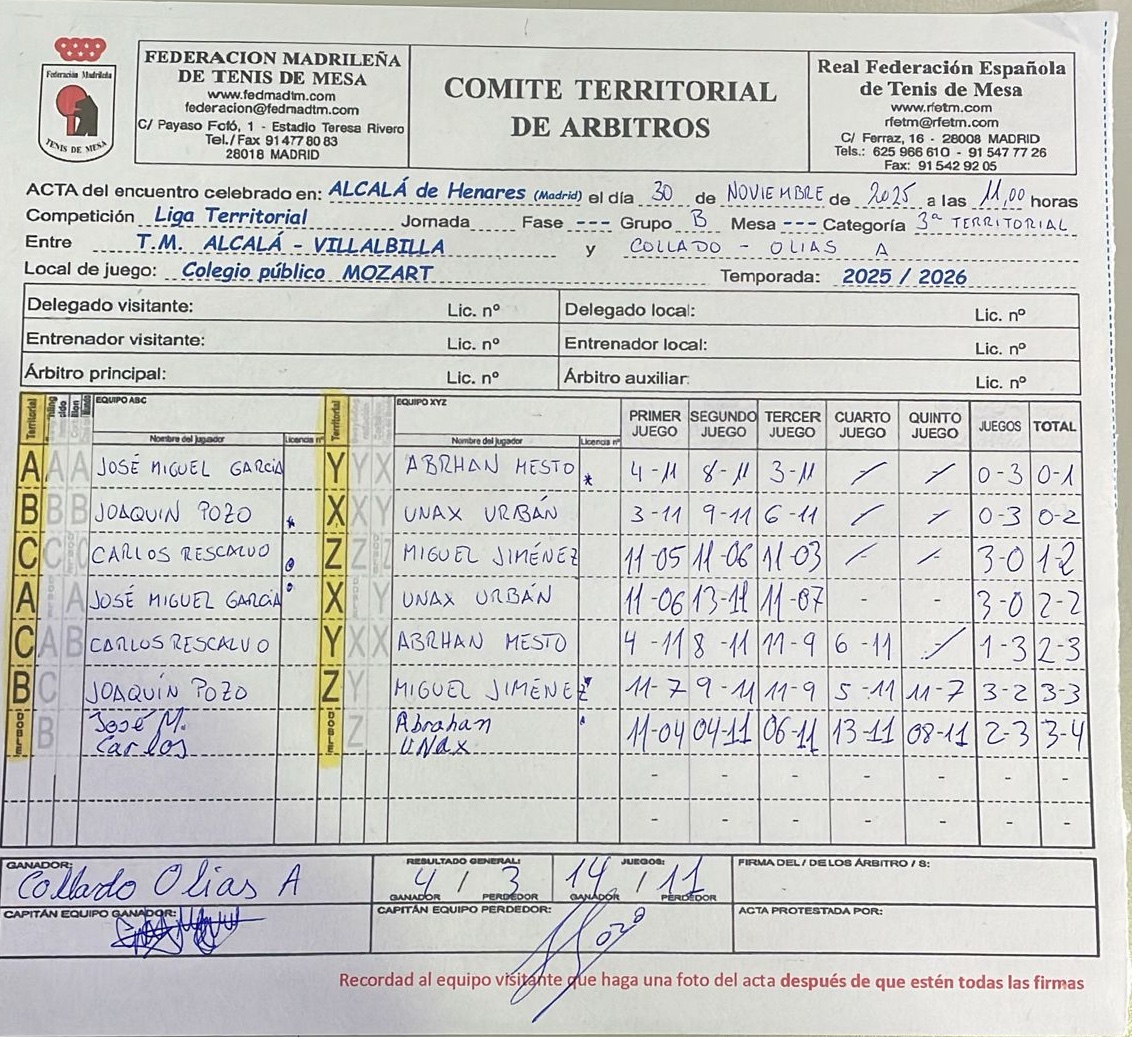 Federación Madrileña
TENIS DE MESA
FEDERACION MADRILEÑA
DE TENIS DE MESA
www.fedmadtm.com
federacion@fedmadtm.com
C/ Payaso Fofó, 1 - Estadio Teresa Rivero
Tel./Fax 91 477 80 83
28018 MADRID
COMITE TERRITORIAL
DE ARBITROS
Real Federación Española
de Tenis de Mesa
www.rfetm.com
rfetm@rfetm.com
C/ Ferraz, 16 - 28008 MADRID
Tels.: 625 966 610 - 91 547 77 26
Fax: 91 542 92 05
ACTA del encuentro celebrado en: ALCALÁ de Henares (Madrid) el día 30 de NOVIEMBRE de 2025 a las 11,00 horas
Competición Liga Territorial Jornada Fase --- Grupo B Mesa --- Categoría 3ª TERRITORIAL
Entre T.M. ALCALÁ - VILLALBILLA y COLLADO - OLIAS A
Local de juego: Colegio público MOZART Temporada: 2025 / 2026
Delegado visitante: Lic. nº Delegado local: Lic. nº
Entrenador visitante: Lic. nº Entrenador local: Lic. nº
Árbitro principal: Lic. nº Árbitro auxiliar: Lic. nº
Territorial EQUIPO ABC Territorial EQUIPO XYZ PRIMER JUEGO SEGUNDO JUEGO TERCER JUEGO CUARTO JUEGO QUINTO JUEGO JUEGOS TOTAL
Nombre del jugador Licencia nº Nombre del jugador Licencia nº
A A A JOSÉ MIGUEL GARCIA Y Y X ABRHAN MESTO * 4-11 8-11 3-11 / / 0-3 0-1
B B B JOAQUIN POZO X X Y UNAX URBÁN 3-11 9-11 6-11 / / 0-3 0-2
C C C CARLOS RESCALVO Z Z Z MIGUEL JIMÉNEZ 11-05 11-06 11-03 / / 3-0 1-2
A A JOSÉ MIGUEL GARCIA X Y UNAX URBÁN 11-06 13-11 11-07 - - 3-0 2-2
C A B CARLOS RESCALVO Y X X ABRHAN MESTO 4-11 8-11 11-9 6-11 / 1-3 2-3
B C JOAQUÍN POZO Z Y MIGUEL JIMÉNEZ 11-7 9-11 11-9 5-11 11-7 3-2 3-3
DOBLE B José M. Carlos DOBLE Z Abrahan UNax 11-04 04-11 06-11 13-11 08-11 2-3 3-4
- - - -
- - - -
GANADOR: Collado Olias A RESULTADO GENERAL: 4 / 3 JUEGOS: 14 / 11 FIRMA DEL / DE LOS ÁRBITRO / S:
GANADOR PERDEDOR GANADOR PERDEDOR
CAPITÁN EQUIPO GANADOR: CAPITÁN EQUIPO PERDEDOR: ACTA PROTESTADA POR:
Recordad al equipo visitante que haga una foto del acta después de que estén todas las firmas